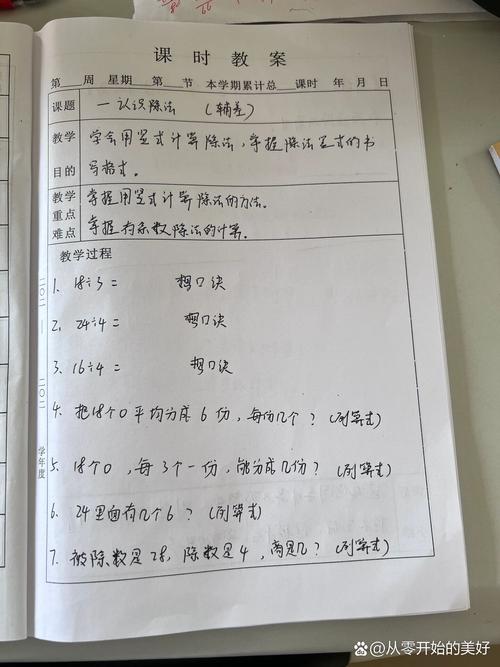 课时教案
第 周 星期 第 节 本学期累计总 课时 年 月 日
课题 一认识除法 (辅差)
教学目的 学会用竖式计算除法,掌握除法竖式的书
写格式。
教学重点难点 掌握用竖式计算除法的方法。
掌握有余数除法的计算。
教学过程
1. 18÷3= 想口诀
2. 24÷4= 想口诀
3. 16÷4= 想口诀
4. 把18个O平均分成6份,每份几个?(列算式)
5. 18个O,每3个一份,能分成几份?(列算式)
6. 24里面有几个6?(列算式)
7. 被除数是28,除数是4,商是几?(列算式)
二〇二 — 二〇二 学年度
@从零开始的美好